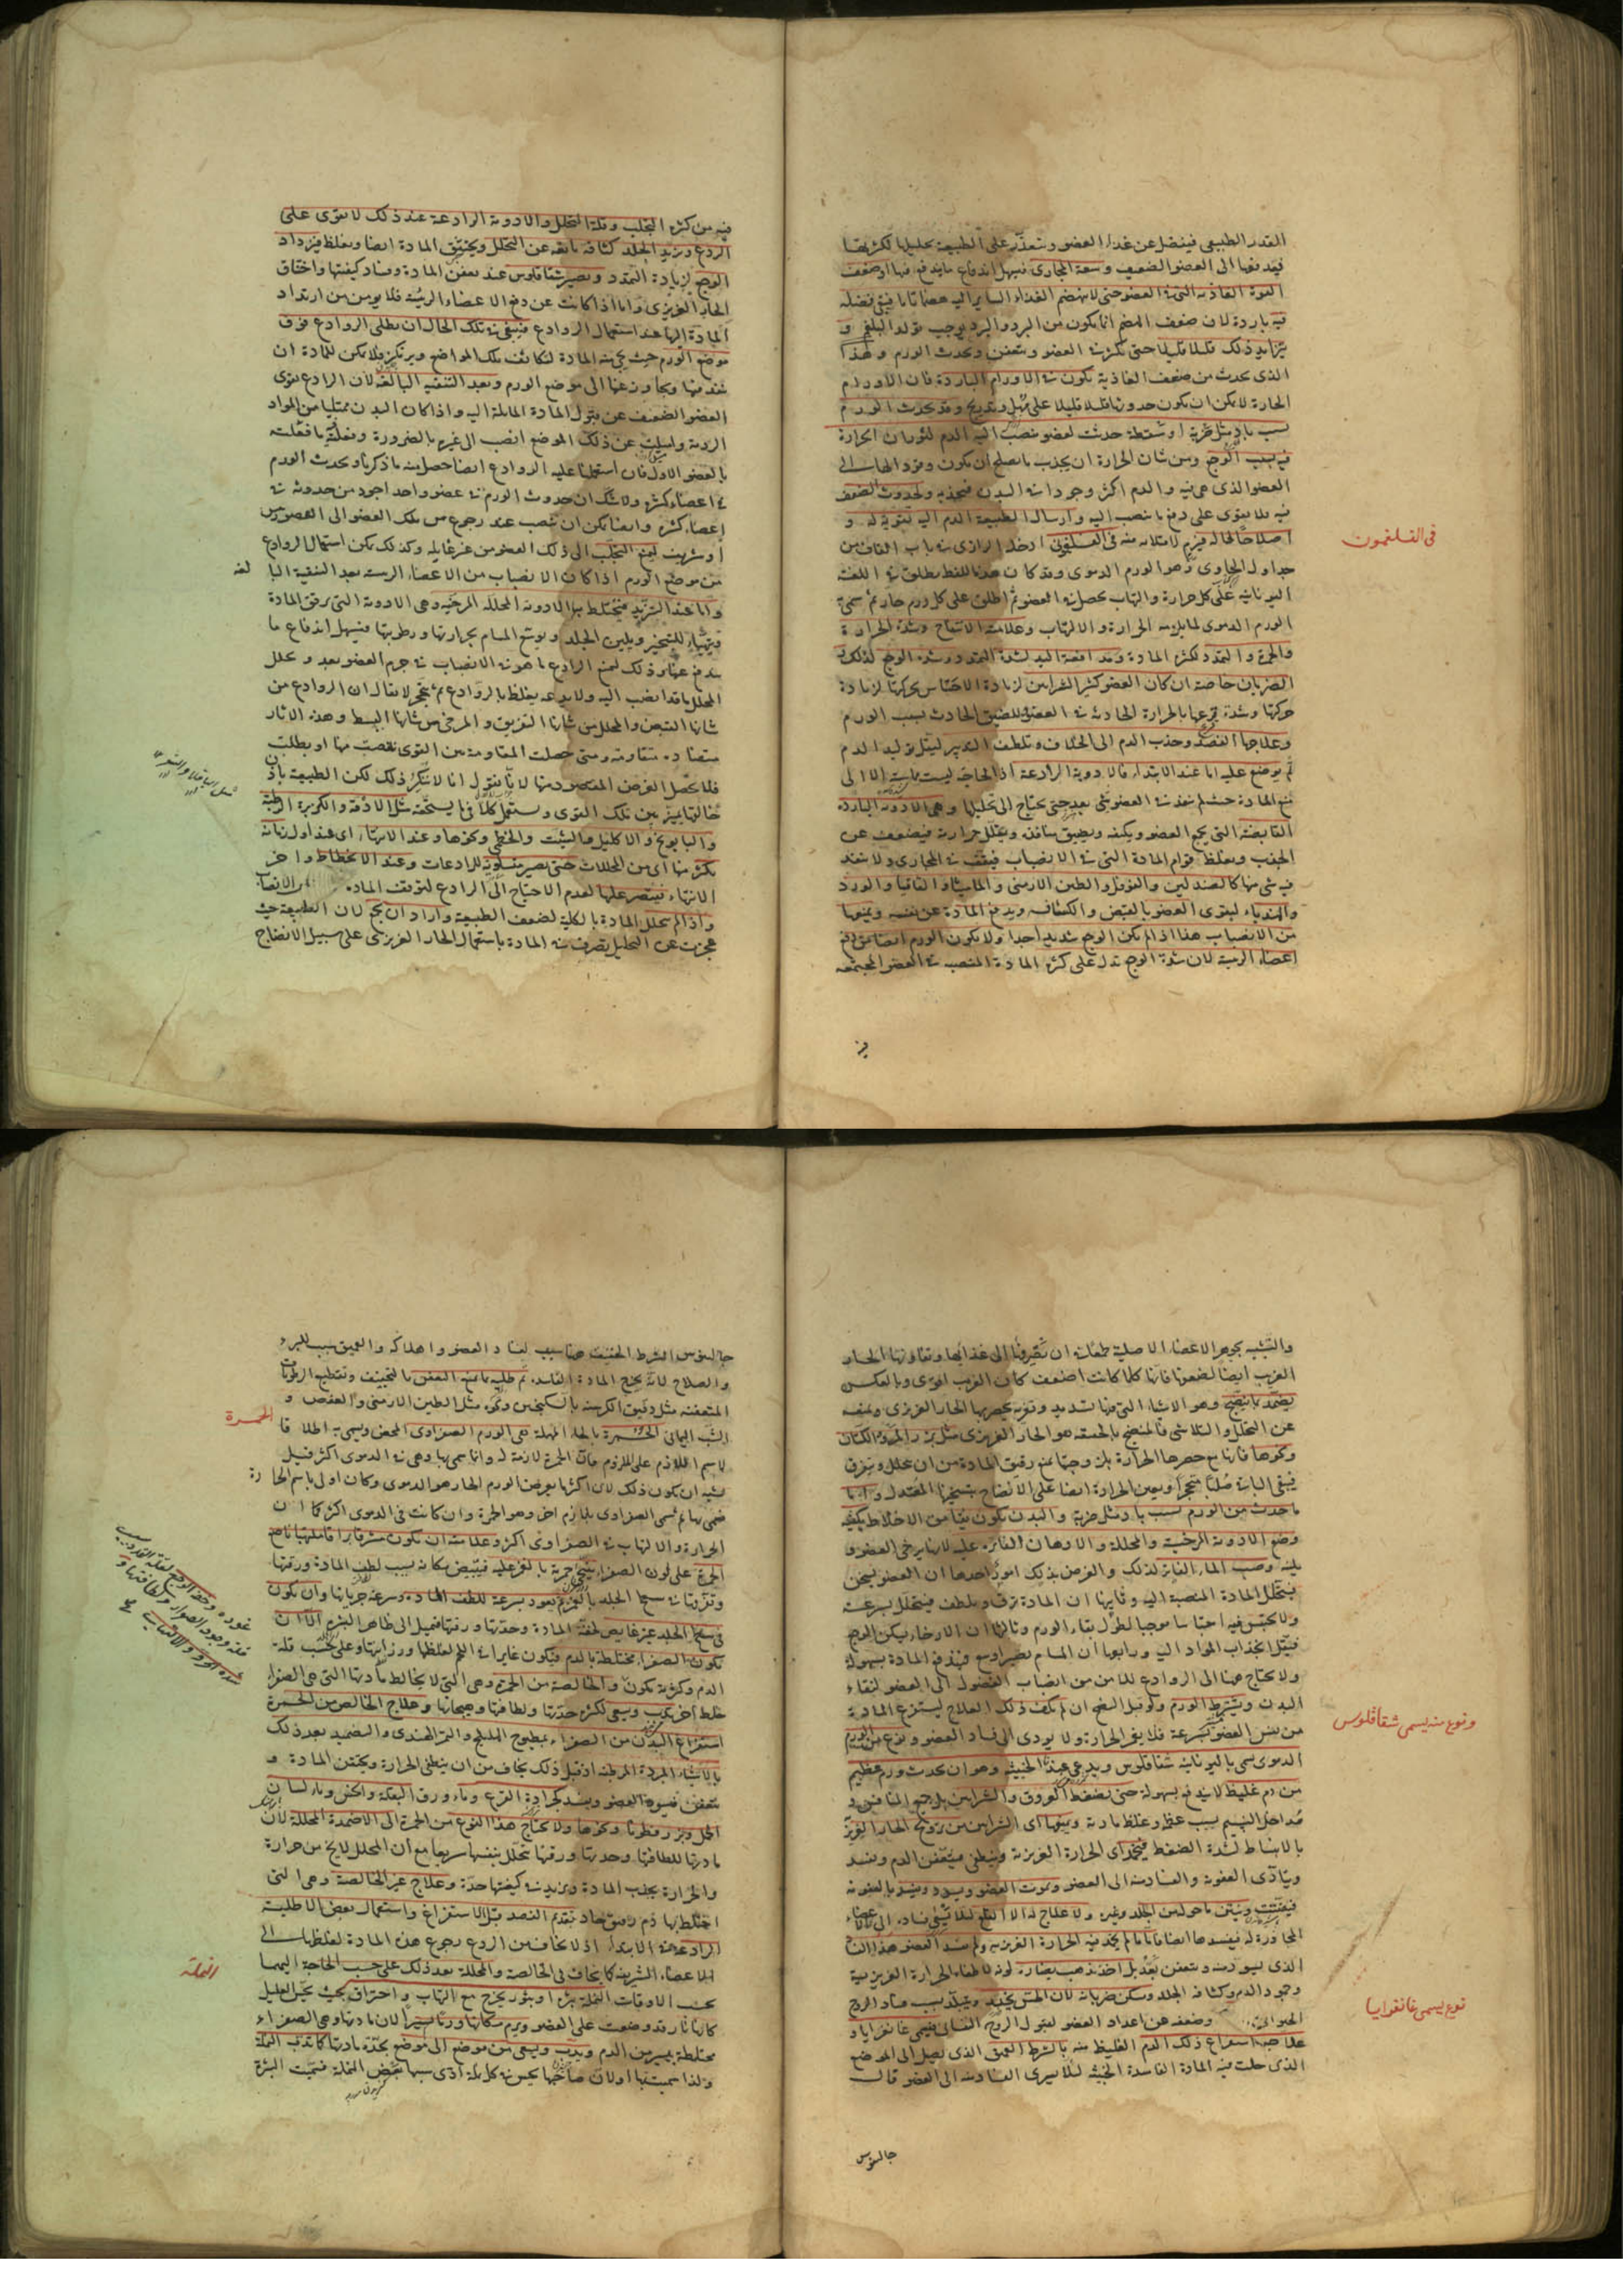 القدر الطبيعى فيفضل عن غذاء العضو ويتعذر على الطبيعة تحليلها لكثرتها
فيدفعها الى العضو الضعيف وسعة المجارى فيسهل اندفاع ما يندفع فيها او ضعف
القوة الغاذية التى فى العضو حتى لا ينهضم الغذاء الساير اليه هضما تاما فيبقى فضله
فيه باردة لان ضعف الهضم انما يكون من البرد والبرد يوجب تولد البلغم و
يتزايد ذلك قليلا قليلا حتى يكثر فى العضو ويتعفن ويحدث الورم وهذا
الذى يحدث من ضعف الغاذية يكون فى الاورام الباردة فان الاورام
الحارة لا يمكن ان يكون حدوثها قليلا قليلا على مهل وتدريج وقد يحدث الورم
بسبب باد مثل ضربة او سقطة حدثت لعضو فينصب اليه الدم لثوران الحرارة
فيه بسبب الوجع ومن شان الحرارة ان يجذب ما يصلح ان يكون وقود الها الى
العضو الذى هى فيه والدم اكثر وجودا فى البدن فتجذبه ولحدوث الضعف
فيه فلا يقوى على دفع ما ينصب اليه وارسال الطبيعة الدم اليه لتقوية له و
اصلاحا لحاله فيرم لامتلائه منه فى الفلغمونى ادخل الرازى فى باب
فى الفلغمون
جداول الحاوى وهو الورم الدموى وقد كان هذا اللفظ يطلق فى اللغة
اليونانية على كل حرارة والتهاب يحصل فى العضو ثم اطلق على كل ورم حار ثم سمى به
الورم الدموى لما يلزمه الحرارة والالتهاب وعلامته الانتفاخ وشدة الحرارة
والحمرة والتمدد لكثرة المادة ومدافعة اليد لشدة التمدد وشدة الوجع لذلك و
الضربان خاصة ان كان العضو كثير الشرايين لزيادة الاحتباس بحركتها لزيادة
حركتها وشدة قرعها بالحرارة الحادثة فى العضو للضيق الحادث بسبب الورم
وعلاجها الفصد وجذب الدم الى الخلاف وتلطيف التدبير ليقل توليد الدم
ثم يوضع عليه اما عند الابتداء فالادوية الرادعة اذ الحاجة ليست ماسة الا الى
منع المادة حتى لم ينفذ فى العضو شئ بعد حتى يحتاج الى تحليلها وهى الادوية الباردة
القابضة التى يجمع العضو ويكثفه ويضيق منافذه ويقلل حرارته فيضعف عن
الجذب ويغلظ قوام المادة التى فى الانصباب فيقف فى المجارى ولا ينفذ
فيه شئ منها كالصندلين والفوفل والطين الارمنى والماميثا والقاقيا والورد
والهندباء ليقوى العضو بالقبض والكثافة ويدفع المادة عن نفسه ويمنعها
من الانصباب هذا اذا لم يكن الوجع شديدا جدا ولا يكون الورم ايضا من دفع
اعضاء الرئيسة لان شدة الوجع تدل على كثرة المادة المنصب فى العضو المجتمعه
فيه من كثرة التجلب وقلة التحلل والادوية الرادعة عند ذلك لا يقوى على
الردع ويزيد الجلد كثافة مانعة عن التحلل ويختنق المادة ايضا ويغلظ فيزداد
الوجع لزيادة التمدد ويصير شقاقلوس عند تعفن المادة وفساد كيفيتها واختناق
الحار الغريزى واما اذا كانت عن دفع الاعضاء الرئيسة فلا يومن من ارتداد
المادة اليها عند استعمال الروادع فينبغى فى تلك الحال ان يطلى الروادع فوق
موضع الورم حيث يجئ منه المادة لتكاثف تلك المواضع ويرتكز فلا يمكن للمادة ان
ينفذ منها ويجاوز عنها الى موضع الورم وبعد التنقية البالغة لان الرادع يقوى
العضو الضعيف عن قبول المادة المايلة اليه واذا كان البدن ممتليا من المواد
الردية وامليت عن ذلك الموضع انصب الى غيره بالضرورة وفعلت به ما فعلت
بالعضو الاول فان استعملنا عليه الروادع ايضا حصل منه ما ذكرنا ويحدث الورم
فى اعضاء كثيرة ولا شك ان حدوث الورم فى عضو واحد اجود من حدوثه فى
اعضاء كثيرة وايضا يمكن ان ينصب عند رجوع من تلك العضو الى العضو رئيس
او شريف لمنع التجلب الى ذلك العضو من غير غايلة وكذلك يمكن استعمال الروادع
من موضع الورم اذا كان الانصباب من الاعضاء الرئيسة بعد التنقية البا لغه
واما عند التزيد فيختلط بها الادوية المحللة المرخية وهى الادوية التى يرقق المادة
فيتهياء للتبخير ويلين الجلد ويوسع المسام بحرارتها ورطوبتها فيسهل اندفاع ما
يندفع عنها وذلك لمنع الرادع ما هو فى الانصباب فى جرم العضو بعد ويحلل
المحلل ما قد انصب اليه ولا يدعه يغلظ بالروادع ثم يتحجر لا يقال ان الروادع من
شانها القبض والمحلل من شانها التفريق والمرخى من شانها البسط وهذه الاثار
متضادة متقاومة ومتى حصلت المقاومة بين القوى نقصت منها او بطلت
فلا يحصل الغرض المقصود منها لانا نقول انا لا ننكر ذلك لكن الطبيعة باذن
خالقها يميز بين تلك القوى ويستعمل كلا فيما يستحقه مثل الادقة والكزبرة الرطبة
والبابونج والاكليل والشبت والخطمى وكوزها وعند الانتهاء اى عند اول زمانه
يكثر منها اى من المحللات حتى يصير مساوية للرادعات وعند الانحطاط واخر
الانتهاء فيقتصر عليها لعدم الاحتياج الى الرادع لتوقف المادة الانصباب
واذا لم يتحلل المادة بالكلية لضعف الطبيعة واراد ان يجمع لان الطبيعة حيث
عجزت عن التحليل يتصرف فى المادة باستعمال الحار الغريزى على سبيل الانضاج
والتشبه بجوهر الاعضاء الاصلية طمعا فى ان تصيرها الى غذائها وتعاونها الحار
الغريب ايضا لضعفها فانها كلما كانت اضعف كان الغريب اقوى وبالعكس
يضمد بما ينضج وهو الاشياء التى فيها تسديد وتغرية يحصر بها الحار الغريزى ويمنعه
عن التحلل والتلاشى فالمنضج بالحقيقة هو الحار الغريزى مثل بزر المر وبزر الكتان
وكوزها فانها مع حصرها الحرارة بلزوجتها يمنع رقيق المادة من ان يتحلل ويتفرق
فيبقى الباقى صلبا متحجرا ويعين الحرارة ايضا على الانضاج بتسخينها المعتدل واما
ما حدث من الورم بسبب باد مثل ضربة والبدن يكون نقيا من الاخلاط يكفيه
وضع الادوية المرخية والمحللة والادهان الفاترة عليه لانها يرخى العضو و
يلينه وصب الماء الفاتر لذلك والغرض بذلك امور احدها ان العضو يسخن
فيتحلل المادة المنصبة اليه وثانيها ان المادة ترق وتلطف فيتحلل بسرعة
ولا يحتبس فيه احتباسا موجبا لطول بقاء الورم وثالثها ان الارخاء يسكن الوجع
فيقل انجذاب المواد اليه ورابعها ان المسام تصير اوسع فيندفع المادة بسهولة
ولا يحتاج هنا الى الروادع للامن من انصباب الفضول الى العضو لنقاء
البدن ويشرط الورم ولو قبل النضج ان لم يكف ذلك العلاج ليستفرغ المادة
من نفس العضو بسرعة فلا يغمر الحرارة ولا يودى الى فساد العضو ونوع من الورم
ونوع منه يسمى شقاقلوس
الدموى يسمى باليونانية شقاقلوس ويدعى الخبيثة وهو ان يحدث ورم عظيم
من دم غليظ لا يندفع بسهولة حتى يضغط العروق والشرايين بل جميع المنافذ و
مداخل النسيم بسبب عظمه وغلظ مادته ويمنعها اى الشرايين من ترويح الحار الغريزى
بالانبساط لشدة الضغط فيخمد اى الحرارة الغريزية وينطفى فيتعفن الدم ويفسد
ويتادى العفونة والفساد منه الى العضو ويموت العضو ويسود ويفسد بالعفونة
فيتفتت وينتن ما حوله من الجلد وغيره ولا علاج له الا القطع لئلا يتمشى فساده الى الاعضاء
المجاورة له فيفسدها ايضا فاما ما لم يخمد فيه الحرارة الغريزية ولم يفسد العضو هذا الفساد
الذى ليسود منه ويتعفن بعد بل اخذ يذهب نضارة لونه لانطفاء الحرارة الغريزية
وجمود الدم وكثافة الجلد وسكن ضربانه لان الحس يتخمد ويتبلد بسبب فساد الروح
نوع يسمى غانغرايا
الحيوانى وضعفه عن اعداد العضو لقبول الروح النفسانى فيسمى غانغرايا و
علاجه استفراغ ذلك الدم الغليظ منه بالشرط العميق الذى يصل الى الموضع
الذى حلت فيه المادة الفاسدة الخبيثة لئلا يسرى الفساد منه الى العضو قال
جالينوس
جالينوس الشرط الخفيف هنا سبب لفساد العضو واهلاكه والعميق سبب للبرء
والصلاح لانه يخرج المادة الفاسدة ثم طليه بما يمنع العفن بالتجفيف وتقطيع الرطوبات
المتعفنة مثل دقيق الكرسنة بالسكنجبين ونحوه مثل الطين الارمنى والعفص و
الحمرة
الشب اليمانى الحمرة بالحاء المهملة هى الورم الصفراوى المحض ويسمى به اطلاقا
لاسم اللازم على الملزوم فان الحمرة لازمة له وانما سمى بها وهى فى الدموى اكثر قيل
يشبه ان يكون ذلك لان اكثر ما يعرض الورم الحار هو الدموى وكان اولى باسم الحارة
فسمى بها ثم سمى الصفراوى بلازم اخر وهو الحمرة وان كانت فى الدموى اكثر كما ان
الحرارة والالتهاب فى الصفراوى اكثر وعلامته ان يكون مشرقا براقا ملتهبا ناصع
الحمرة على لون الصفراء تنتحى حمرته بالغمز عليه فيبيض مكانه بسبب لطف المادة ورقتها
وتفرقها فى سطح الجلد بالغمز ثم يعود بسرعة للطف المادة وسرعة جريانها وان يكون
فى سطح الجلد غير غايص لخفة المادة وحدتها ورقتها فيميل الى ظاهر البشرة الا ان
يكون الصفراء مختلطة بالدم فيكون غايرا فى اللحم لغلظها ورزانتها وعلى حسب قلة
الدم وكثرته يكون والخالصة من الحمرة وهى التى لا يخالط مادتها التى هى الصفراء
خلط اخر يدب ويسعى لكثرة حدتها ولطافتها وهيجانها وعلاج الخالص من الحمرة
استفراغ البدن من الصفراء بمطبوخ الهليلج والتمر الهندى والتضميد بعد ذلك
بالاشياء المبردة المرطبة اذ قبل ذلك يخاف من ان ينطفى الحرارة ويحتقن المادة و
يتعفن فيسود العضو ويفسد كجرادة القرع وماء ورق البقلة والخس وماء لسان
الحمل وبزر قطونا وكوزها ولا يحتاج هذا النوع من الحمرة الى الاضمدة المحللة لان
مادتها للطافتها وحدتها ورقتها تتحلل بنفسها سريعا مع ان المحلل لا يخ من حرارة
والحرارة يجذب المادة ويزيد فى كيفيتها حدة وعلاج غير الخالصة وهى التى
اختلط بها دم رقيق حاد تقديم الفصد قبل الاستفراغ واستعمال بعض الاطلية
النملة
الرادعة فى الابتداء اذ لا يخاف من الردع رجوع هذه المادة لغلظها الى
الاعضاء الشريفة كما يخاف فى الخالصة والمحللة بعد ذلك على حسب الحاجة اليها
بحسب الاوقات النملة بثرة او بثور يخرج مع التهاب واحتراق بحيث يتخيل العليل
كانها نار قد وضعت على العضو ويرم مكانها ورما يسيرا لان مادتها وهى الصفراء
مختلطة بيسير من الدم ويدب ويسعى من موضع الى موضع بحدة مادتها كما تدب النملة
ولذا سميت بها او لان صاحبها يحس فى كل بثرة اذى شبيها بعض النملة فسميت البثرة